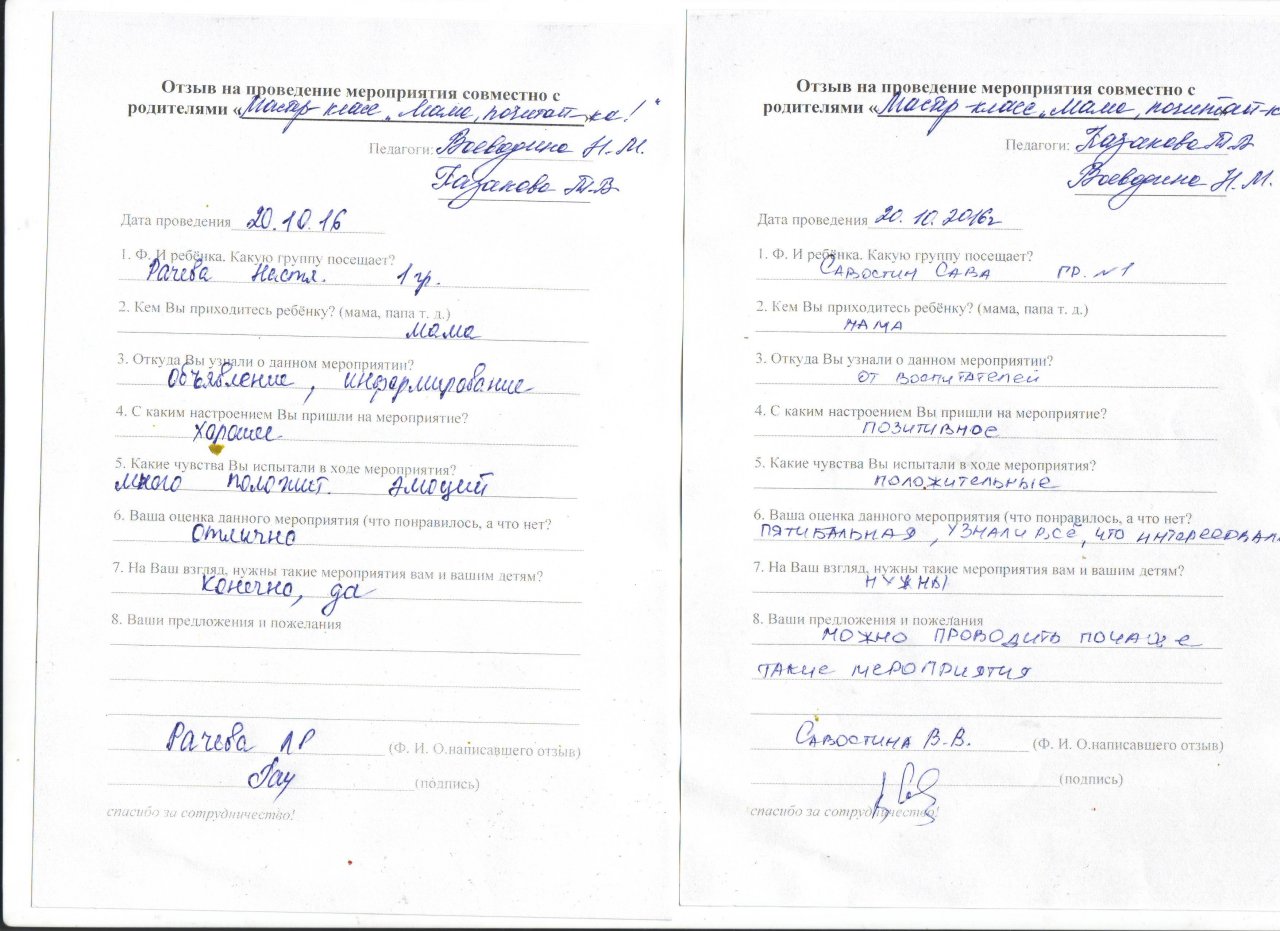 Отзыв на проведение мероприятия совместно с
родителями «Мастер-класс „Мама, почитай-ка!"
Педагоги: Воеводина Н.М.
Казакова Т.В
Дата проведения 20.10.16
1. Ф. И ребёнка. Какую группу посещает?
Рачева Настя. 1 гр.
2. Кем Вы приходитесь ребёнку? (мама, папа т. д.)
мама
3. Откуда Вы узнали о данном мероприятии?
Объявление, информирование
4. С каким настроением Вы пришли на мероприятие?
Хорошее
5. Какие чувства Вы испытали в ходе мероприятия?
много положит. эмоций
6. Ваша оценка данного мероприятия (что понравилось, а что нет?
Отлично
7. На Ваш взгляд, нужны такие мероприятия вам и вашим детям?
Конечно, да
8. Ваши предложения и пожелания
Рачева ЛР (Ф. И. О.написавшего отзыв)
(подпись)
спасибо за сотрудничество!
Отзыв на проведение мероприятия совместно с
родителями «Мастер-класс „Мама, почитай-к
Педагоги: Казакова Т.В
Воеводина Н.М.
Дата проведения 20.10.2016г
1. Ф. И ребёнка. Какую группу посещает?
Савостин Сава гр. №1
2. Кем Вы приходитесь ребёнку? (мама, папа т. д.)
мама
3. Откуда Вы узнали о данном мероприятии?
от воспитателей
4. С каким настроением Вы пришли на мероприятие?
позитивное
5. Какие чувства Вы испытали в ходе мероприятия?
положительные
6. Ваша оценка данного мероприятия (что понравилось, а что нет?
пятибальная, узнали всё, что интересовал
7. На Ваш взгляд, нужны такие мероприятия вам и вашим детям?
нужны
8. Ваши предложения и пожелания
можно проводить почаще
такие мероприятия
Савостина В.В. (Ф. И. О.написавшего отзыв)
(подпись)
спасибо за сотрудничество!